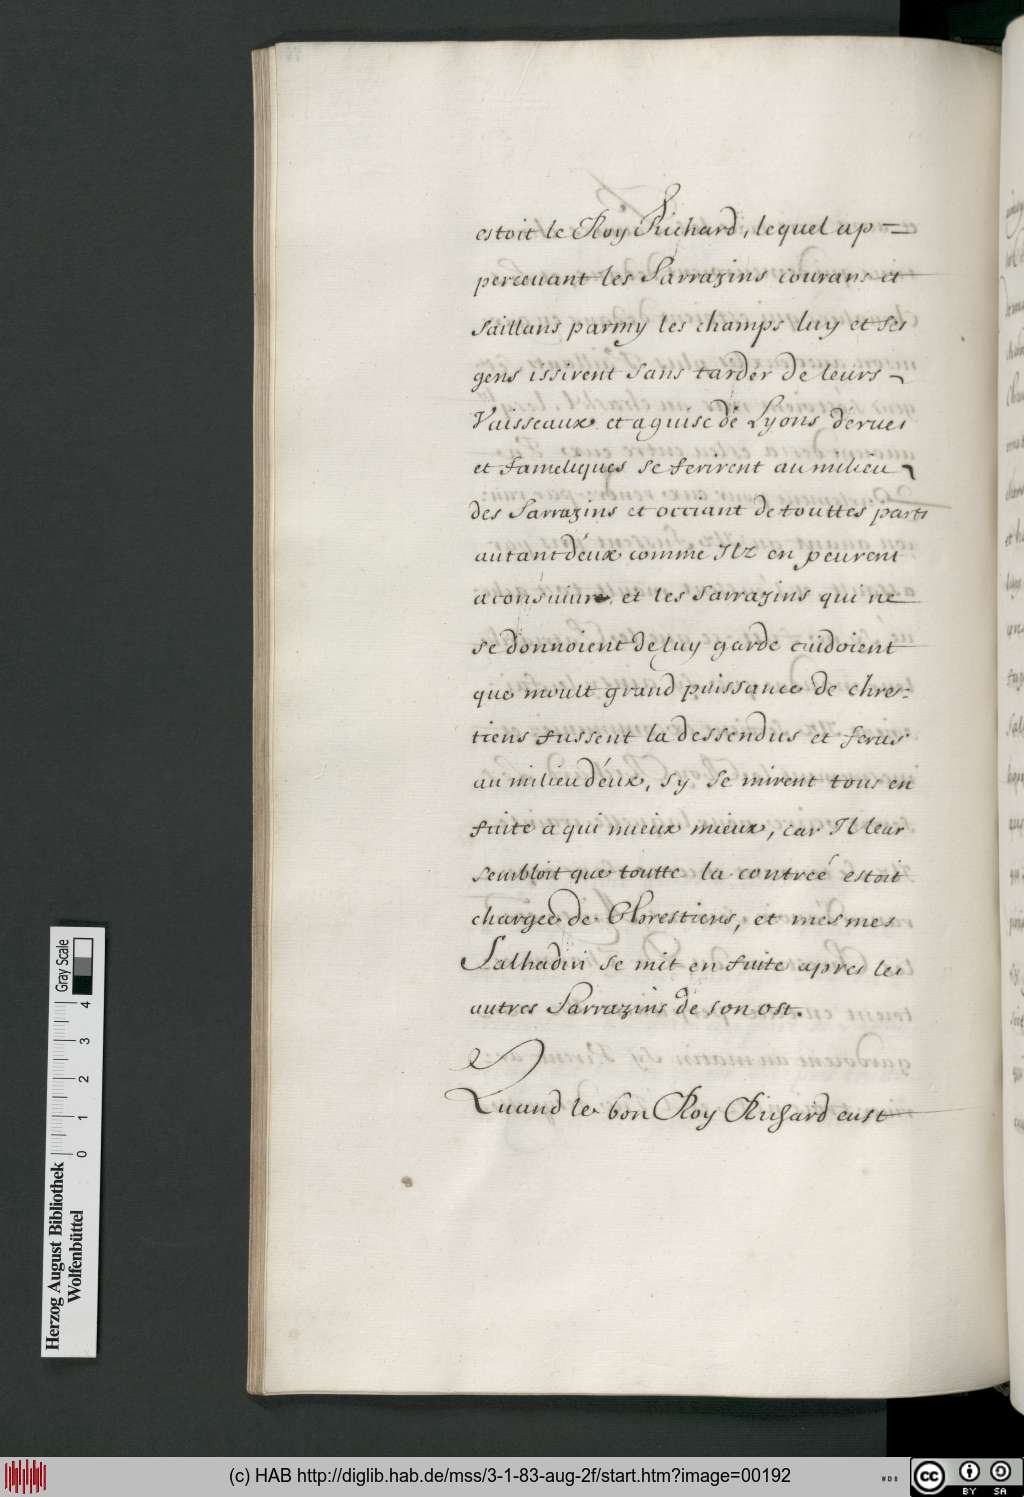 estoit le Roy Richard, lequel ap=
perceuant les Sarrazins courans et
saillans parmy les champs luy et ses
gens issirent sans tarder de leurs
Vaisseaux et a guise de Lyons dérués
et fameliques se ferirent au milieu
des Sarrazins et occiant de touttes parts
autant d'éux comme Ilz en peurent
aconsuiure, et les Sarrazins qui ne
se donnoient de luy garde cuidoient
que moult grand puissance de chres-
tiens fussent la dessendus et ferus
au milieu d'éux, sy se mirent tous en
fuite a qui mieux mieux, car Il leur
sembloit que toutte la contreé estoit
chargeé de Chrestiens, et mesmes
Salhadin se mit en fuite apres les
autres Sarrazins de son ost.
Quand le bon Roy Richard eust
Herzog August Bibliothek
Wolfenbüttel
0 1 2 3 4
Gray Scale
(c) HAB http://diglib.hab.de/mss/3-1-83-aug-2f/start.htm?image=00192
WDB
cc BY SA